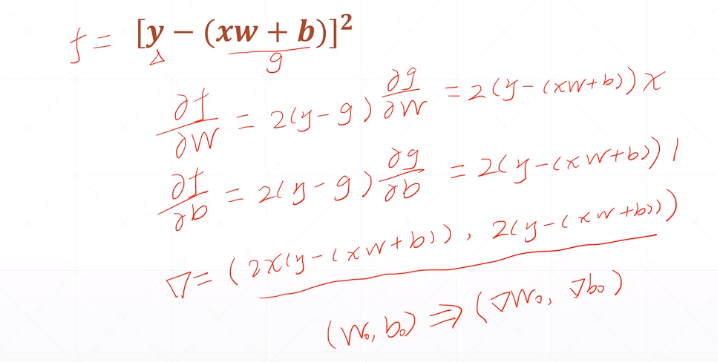 f = [y − (xw + b)]²
△ g
∂f/∂w = 2(y-g) ∂g/∂w = 2(y-(xw+b)) x
∂f/∂b = 2(y-g) ∂g/∂b = 2(y-(xw+b)) 1
∇ = (2x(y-(xw+b)), 2(y-(xw+b)))
(w₀, b₀) ⇒ (∇w₀, ∇b₀)